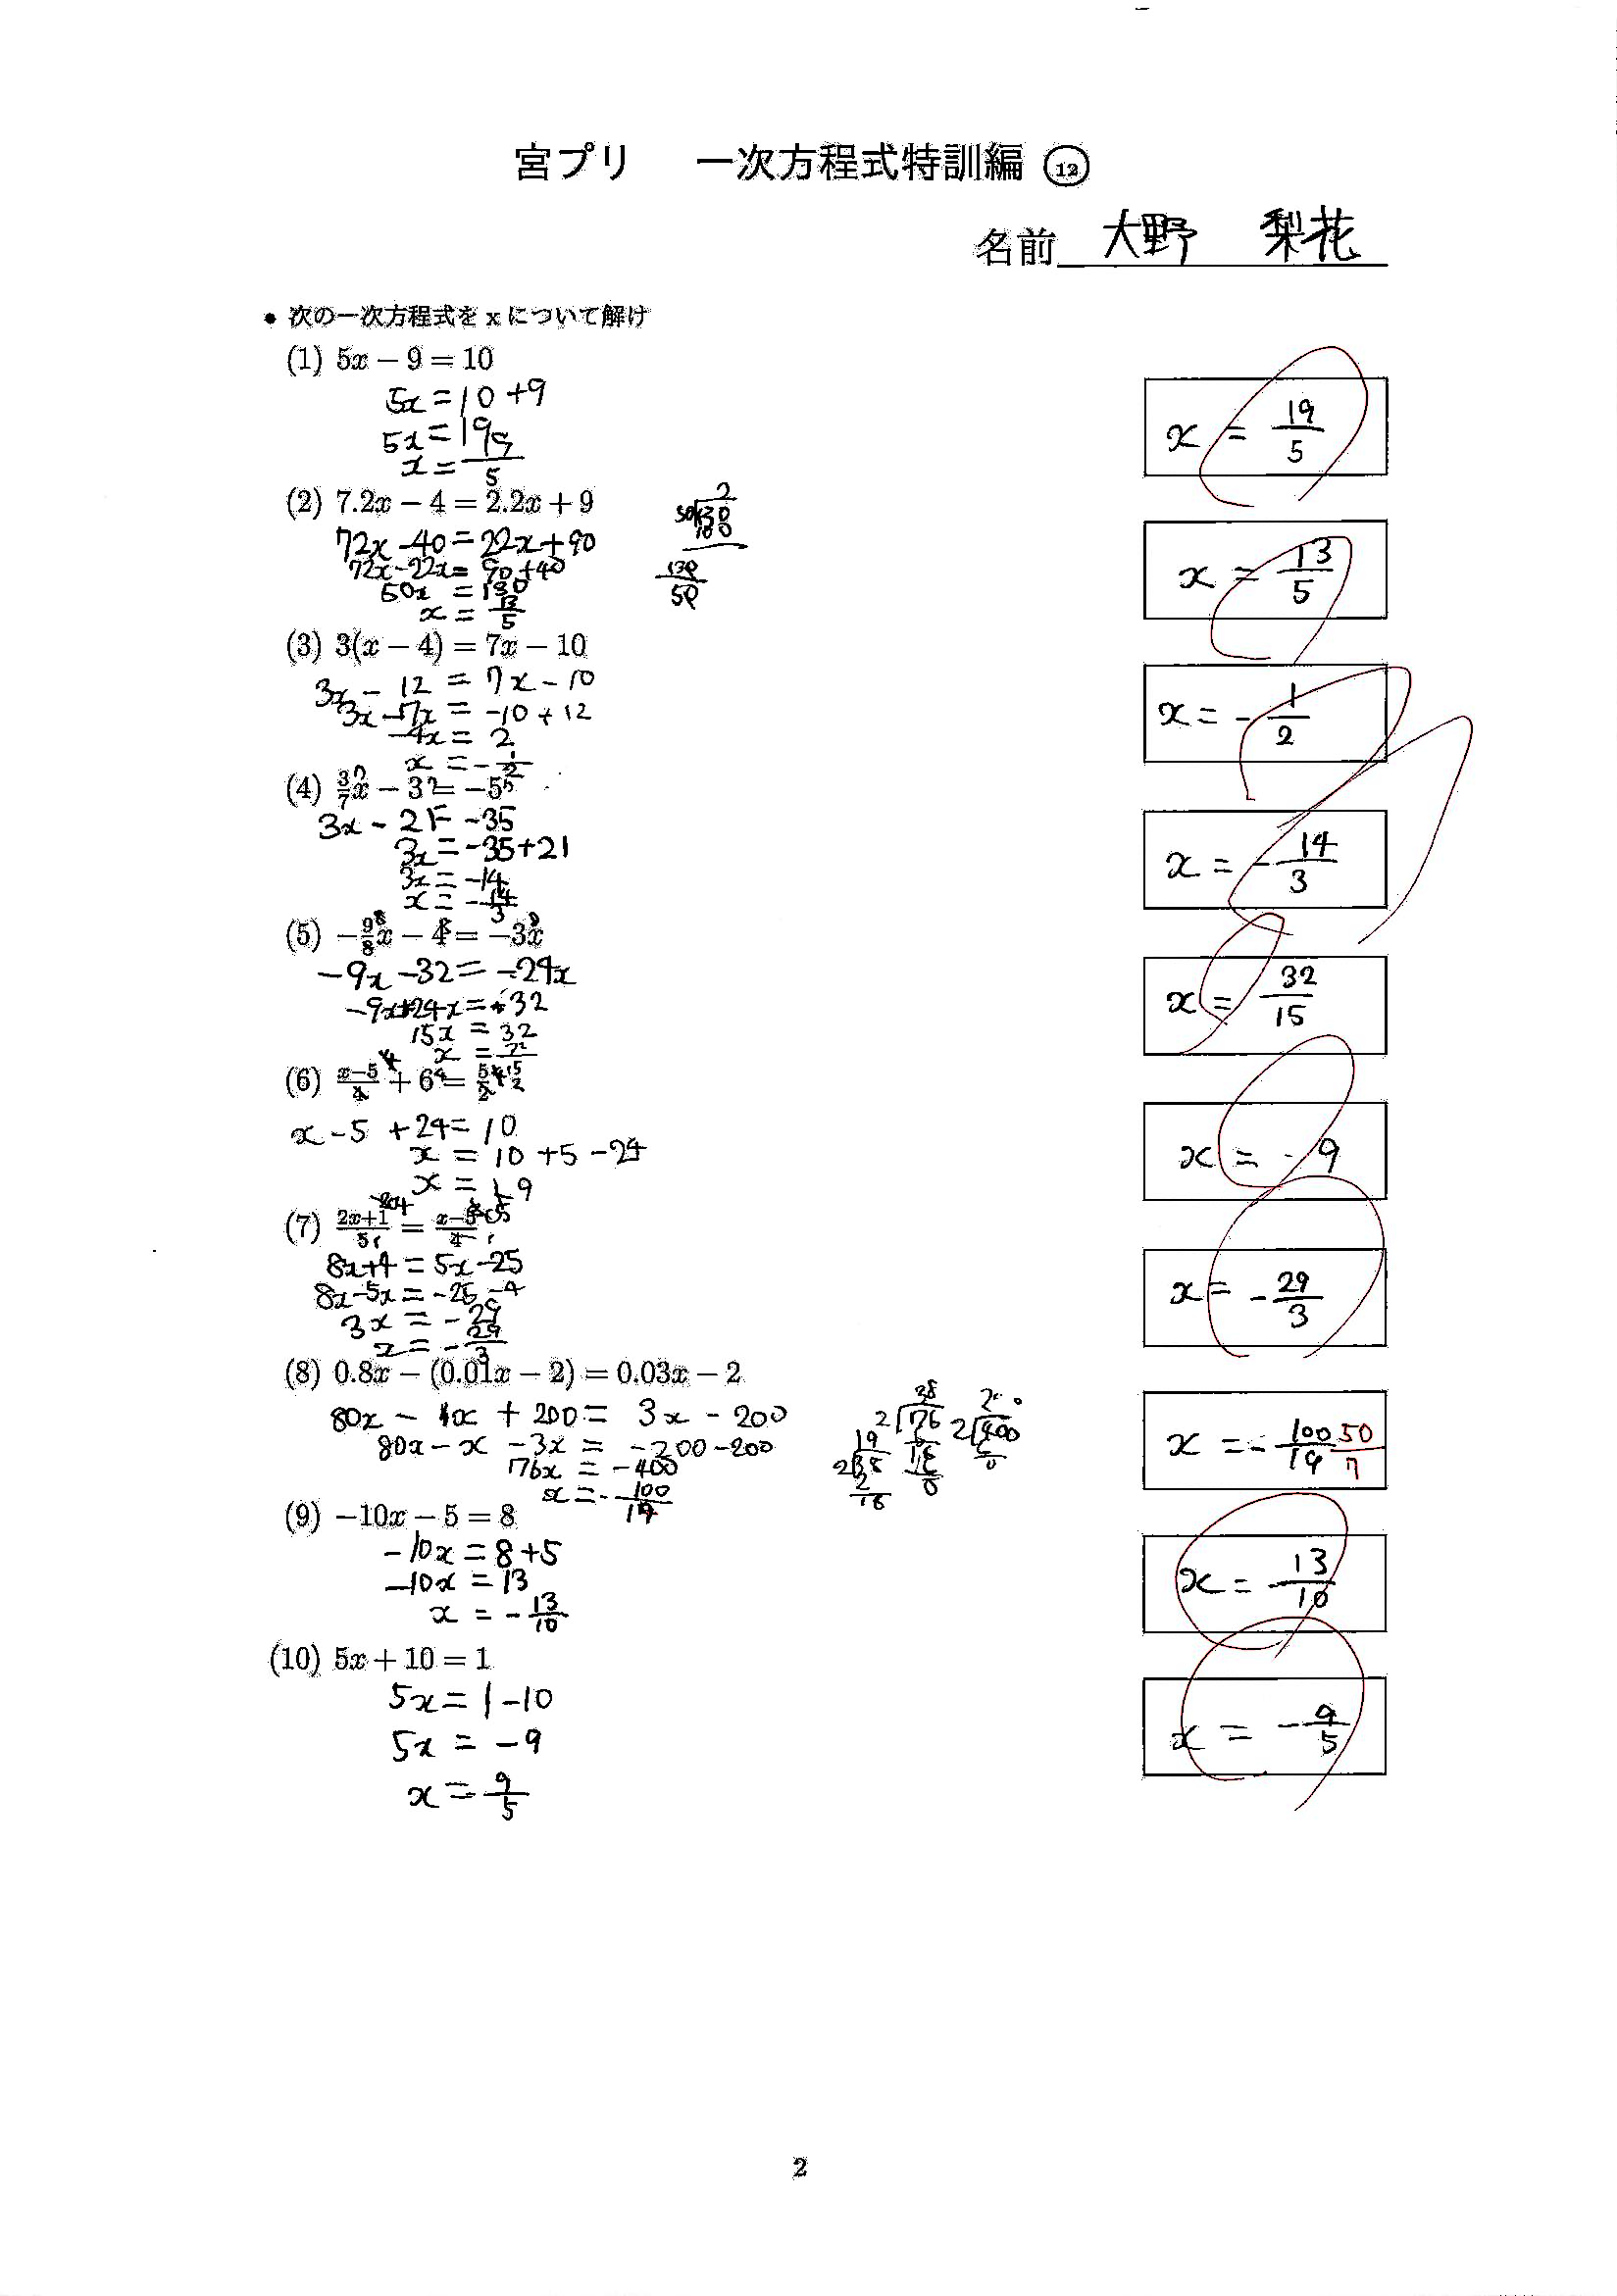 宮プリ 一次方程式特訓編 ⑫
名前 大野 梨花
• 次の一次方程式を x について解け
(1) 5x − 9 = 10
5x = 10 + 9
5x = 19
x = 19/5
x = 19/5
(2) 7.2x − 4 = 2.2x + 9
72x − 40 = 22x + 90
72x − 22x = 90 + 40
50x = 130
x = 13/5
130/50
x = 13/5
(3) 3(x − 4) = 7x − 10
3x − 12 = 7x − 10
3x − 7x = −10 + 12
−4x = 2
x = −1/2
x = −1/2
(4) 3/7x − 3 = −5
3x − 21 = −35
3x = −35 + 21
3x = −14
x = −14/3
x = −14/3
(5) −9/8x − 4 = −3x
−9x − 32 = −24x
−9x + 24x = 32
15x = 32
x = 32/15
(6) x−5/4 + 6 = 5/2
x − 5 + 24 = 10
x = 10 + 5 − 24
x = −9
x = −9
(7) 2x+1/5 = x−5/4
8x + 4 = 5x − 25
8x − 5x = −25 − 4
3x = −29
x = −29/3
x = −29/3
(8) 0.8x − (0.01x − 2) = 0.03x − 2
80x − x + 200 = 3x − 200
80x − x − 3x = −200 − 200
76x = −400
x = −100/19
x = −100/19 50/7
(9) −10x − 5 = 8
−10x = 8 + 5
−10x = 13
x = −13/10
x = −13/10
(10) 5x + 10 = 1
5x = 1 − 10
5x = −9
x = 9/5
x = −9/5
2